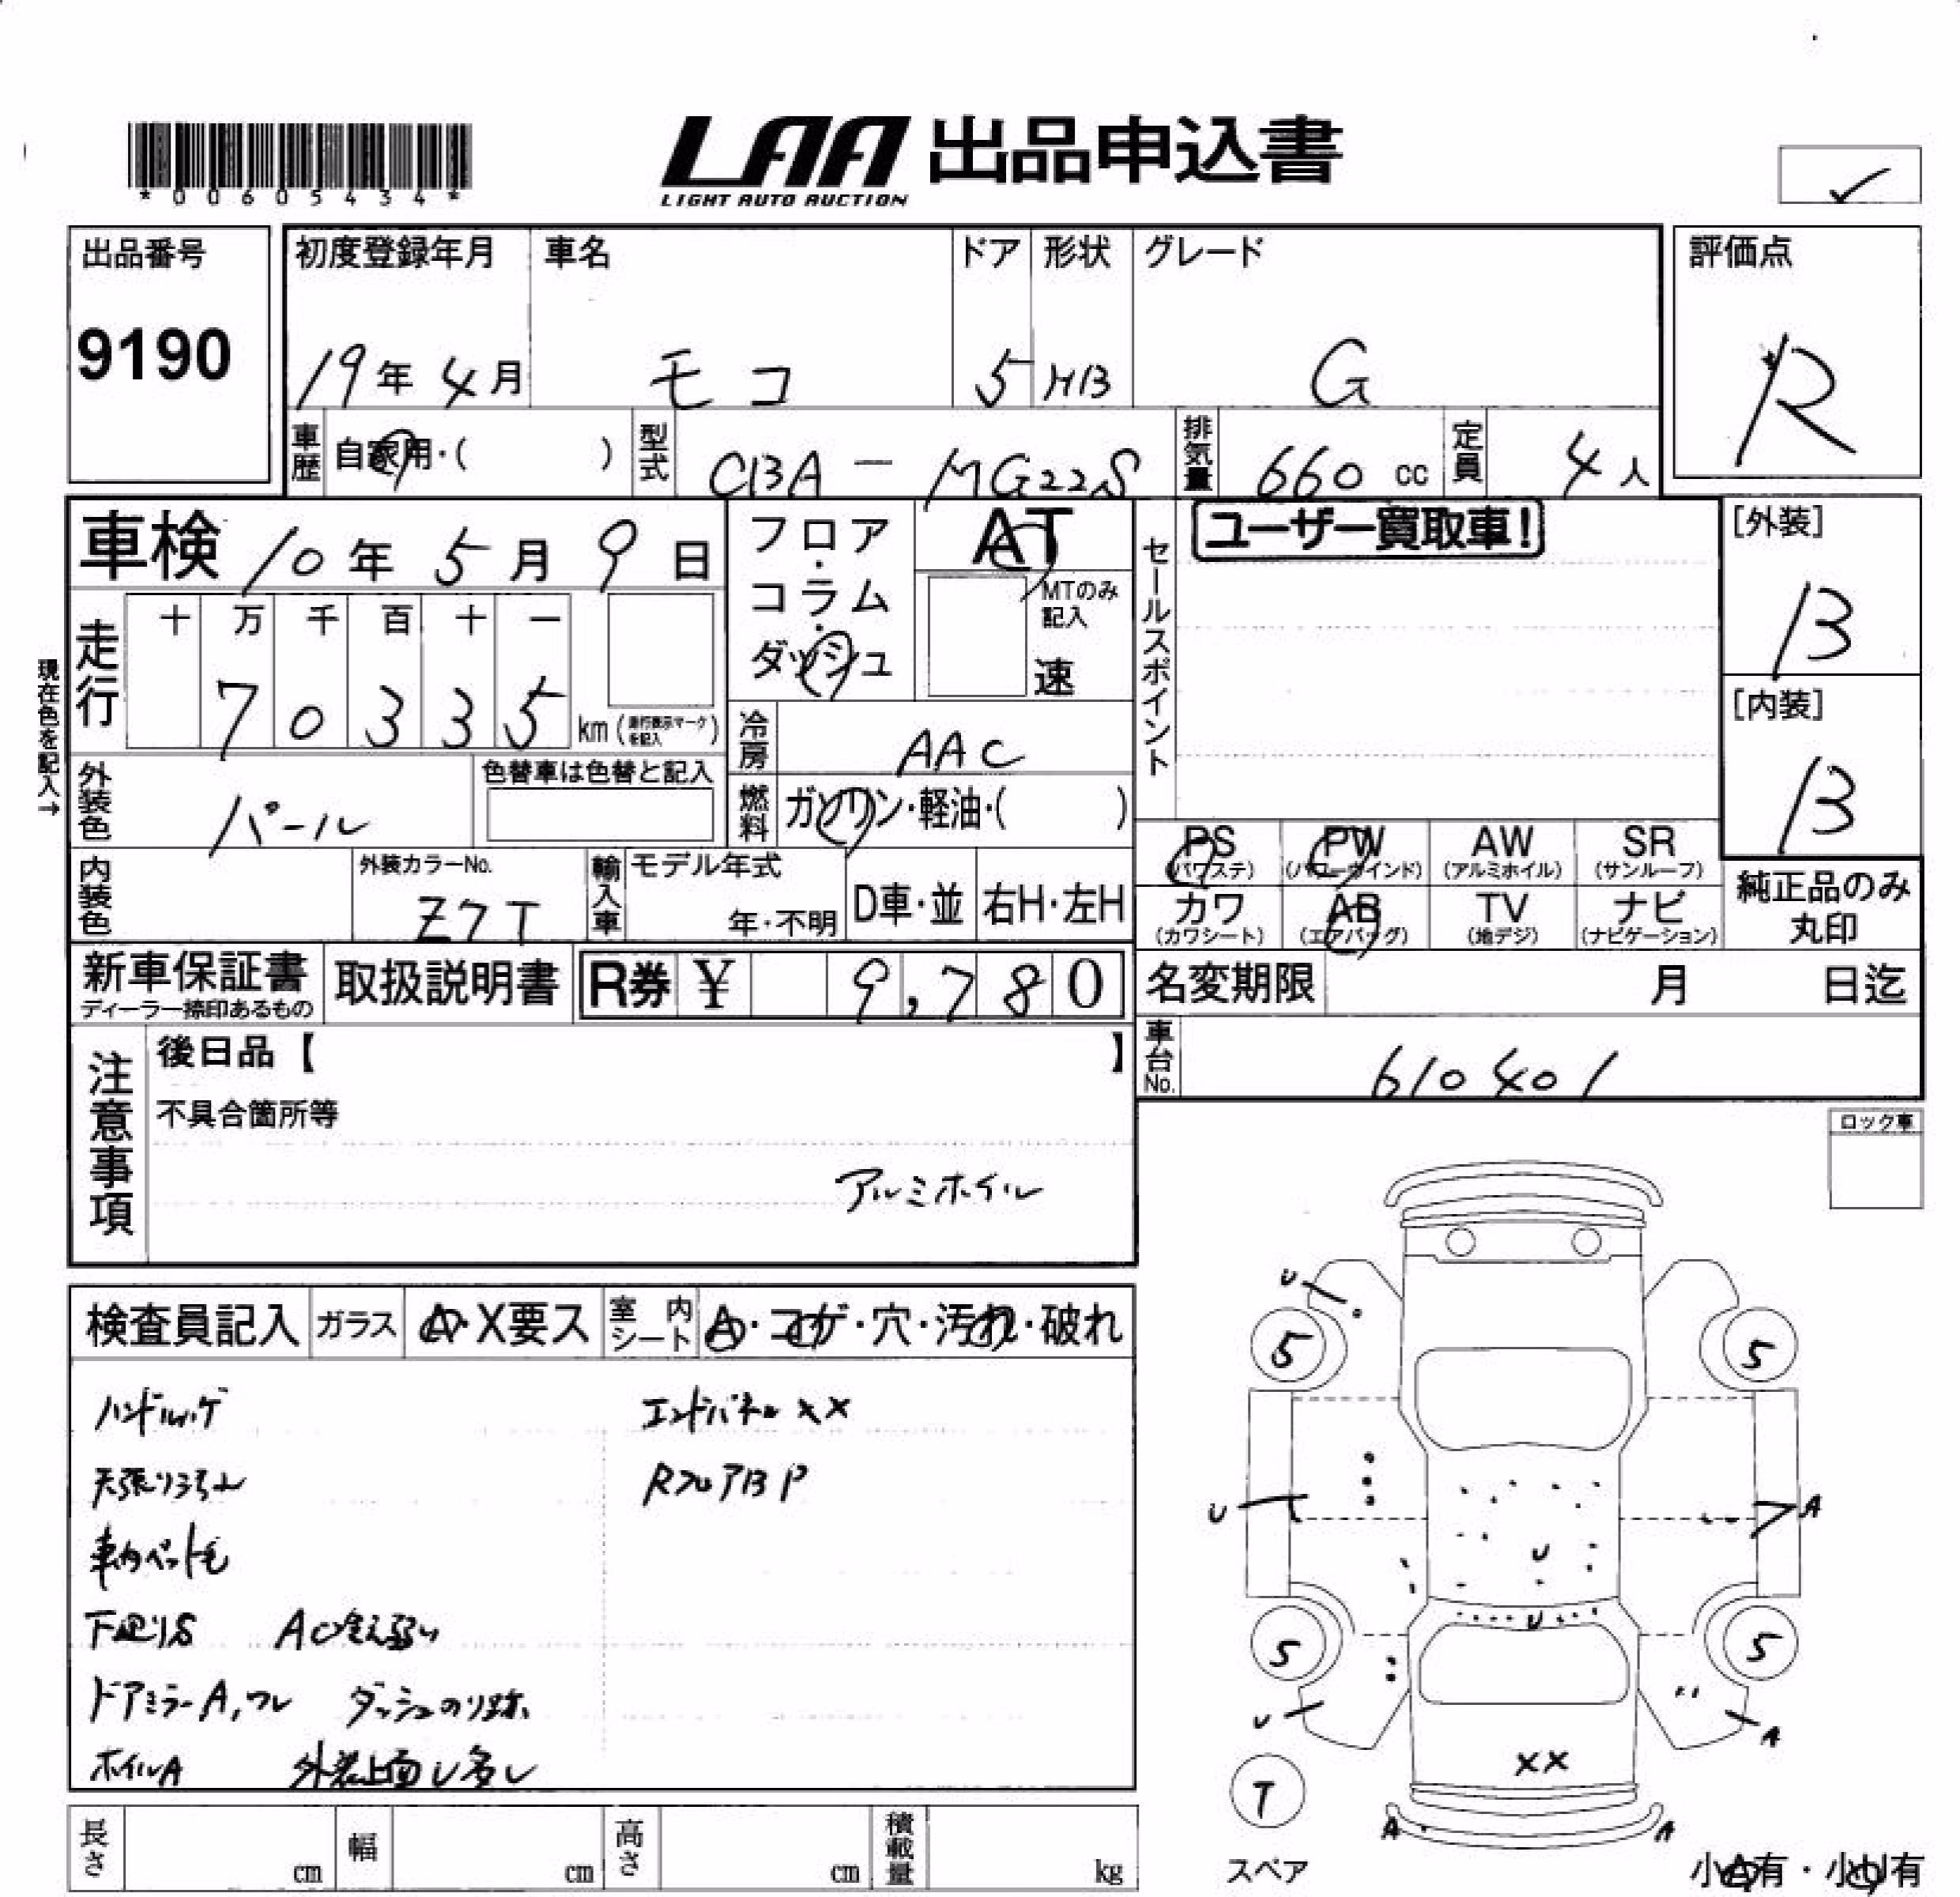 *00605434*
LAA 出品申込書
LIGHT AUTO AUCTION
✓
出品番号
9190
初度登録年月
19年4月
車名
モコ
ドア
5
形状
HB
グレード
G
評価点
R
車歴
自家用・( )
型式
CBA-MG22S
排気量
660 cc
定員
4人
車検 10年5月9日
フロア・コラム・ダッシュ
AT
MTのみ記入
速
セールスポイント
ユーザー買取車!
[外装]
B
[内装]
B
現在色を記入→
走行
十 万 千 百 十 一
7 0 3 3 5
km(走行表示マークを記入)
冷房
AAC
外装色
パール
色替車は色替と記入
燃料
ガソリン・軽油・( )
PS (パワステ)
PW (パワーウインド)
AW (アルミホイル)
SR (サンルーフ)
カワ (カワシート)
AB (エアバッグ)
TV (地デジ)
ナビ (ナビゲーション)
純正品のみ丸印
内装色
外装カラーNo.
Z7T
輸入車
モデル年式
年・不明
D車・並
右H・左H
新車保証書
ディーラー捺印あるもの
取扱説明書
R券 ¥ 9,780
名変期限 月 日迄
車台No.
610401
注意事項
後日品【 】
不具合箇所等
アルミホイル
ロック車
検査員記入
ガラス
A・X要ス
室内シート
A・コゲ・穴・汚れ・破れ
ハンドルハゲ
エンドパネルXX
天張りヨゴレ
RフロアBP
車内ペット毛
下廻りS
AC冷え弱い
ドアミラーA,ワレ
ダッシュのり跡
ホイルA
外装上面U多し
U
5
5
U
A
U
U
5
5
U
A
XX
T
スペア
A
A
小A有・小U有
長さ cm
幅 cm
高さ cm
積載量 kg